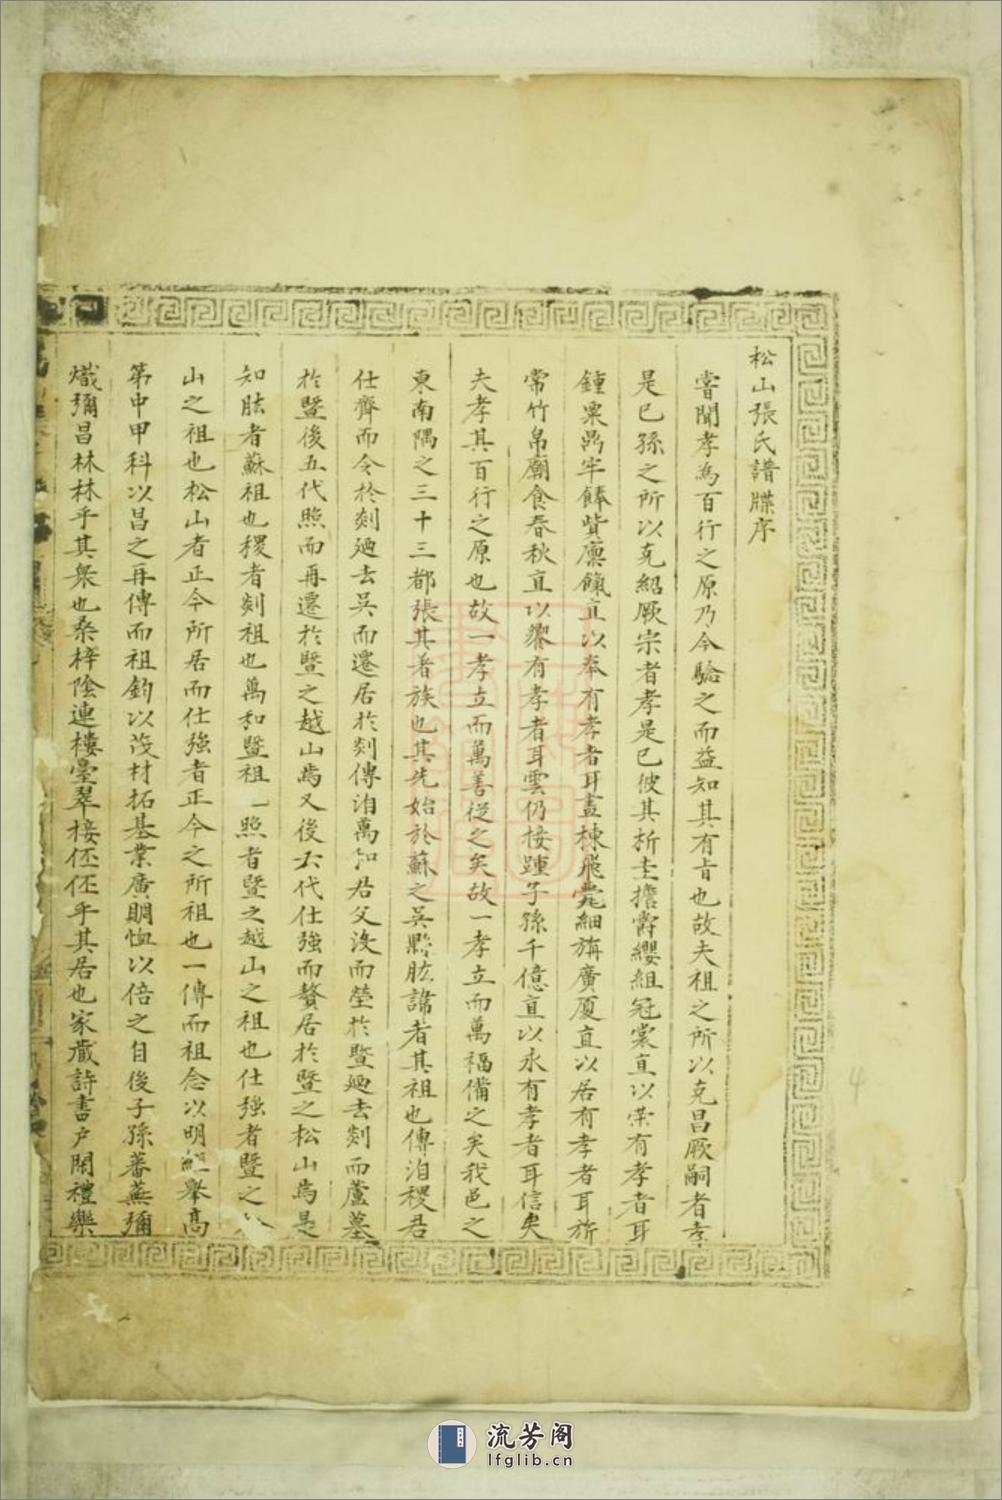 松山張氏譜牒序
嘗聞孝為百行之原乃今驗之而益知其有旨也故夫祖之所以克昌厥嗣者孝
是已孫之所以克紹厥宗者孝是已彼其析圭擔爵纓組冠裳直以榮有孝者耳
鍾粟鼎牢餼貲廩餼直以奉有孝者耳畫棟飛甍細旃廣厦直以居有孝者耳旂
常竹帛廟食春秋直以饗有孝者耳雲仍接踵子孫千億直以永有孝者耳信矣
夫孝其百行之原也故一孝立而萬善從之矣故一孝立而萬福備之矣我邑之
東南隅之三十三都張其著族也其先始於蘇之吳縣肱諱者其祖也傳洎稷君
仕齊而令於剡廼去吳而遷居於剡傳洎萬和君父沒而塋於暨廼去剡而廬墓
於暨後五代照而再遷於暨之越山焉又後六代仕強而贅居於暨之松山焉是
知肱者蘇祖也稷者剡祖也萬和暨祖一照者暨之越山之祖也仕強者暨之
山之祖也松山者正今所居而仕強者正今之所祖也一傳而祖念以明經舉高
第中甲科以昌之再傳而祖鈞以茂材拓基業廣賙恤以倍之自後子孫蕃蕪彌
熾彌昌林林乎其衆也桑梓陰連樓臺翠接伾伾乎其居也家藏詩書戶閑禮樂
流芳阁
lfglib.cn